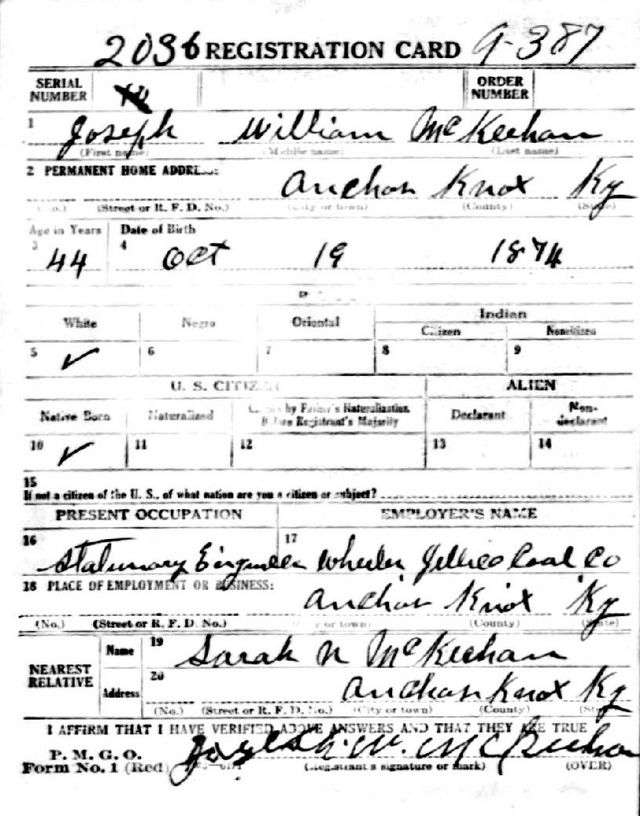 2036 REGISTRATION CARD 9-387
SERIAL NUMBER ORDER NUMBER
1 Joseph William McKeehan
(First name) (Middle name) (Last name)
2 PERMANENT HOME ADDRESS:
Anchor Knox Ky
(No.) (Street or R. F. D. No.) (City or town) (County) (State)
Age in Years Date of Birth
3 44 4 Oct 19 1874
White Negro Oriental Indian
Citizen Noncitizen
5 ✓ 6 7 8 9
U. S. CITIZEN ALIEN
Native Born Naturalized Citizen by Father's Naturalization Before Registrant's Majority Declarant Non-declarant
10 ✓ 11 12 13 14
15
If not a citizen of the U. S., of what nation are you a citizen or subject?
PRESENT OCCUPATION EMPLOYER'S NAME
16 Stationary Engineer 17 Wheeler Jellico Coal Co
18 PLACE OF EMPLOYMENT OR BUSINESS:
Anchor Knox Ky
(No.) (Street or R. F. D. No.) (City or town) (County) (State)
NEAREST RELATIVE
Name 19 Sarah N McKeehan
Address 20 Anchor Knox Ky
(No.) (Street or R. F. D. No.) (City or town) (County) (State)
I AFFIRM THAT I HAVE VERIFIED ABOVE ANSWERS AND THAT THEY ARE TRUE
P. M. G. O.
Form No. 1 (Red) Joseph W. McKeehan
(Registrant's signature or mark) (OVER)